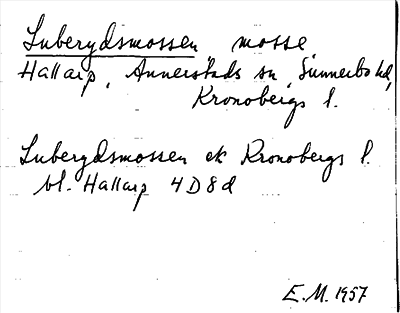 Luberydsmossen mosse
Hallarp, Annerstads sn, Sunnerbo hd,
Kronobergs l.
Luberydsmossen ek Kronobergs l.
bl. Hallarp 4D8d
E.M. 1957